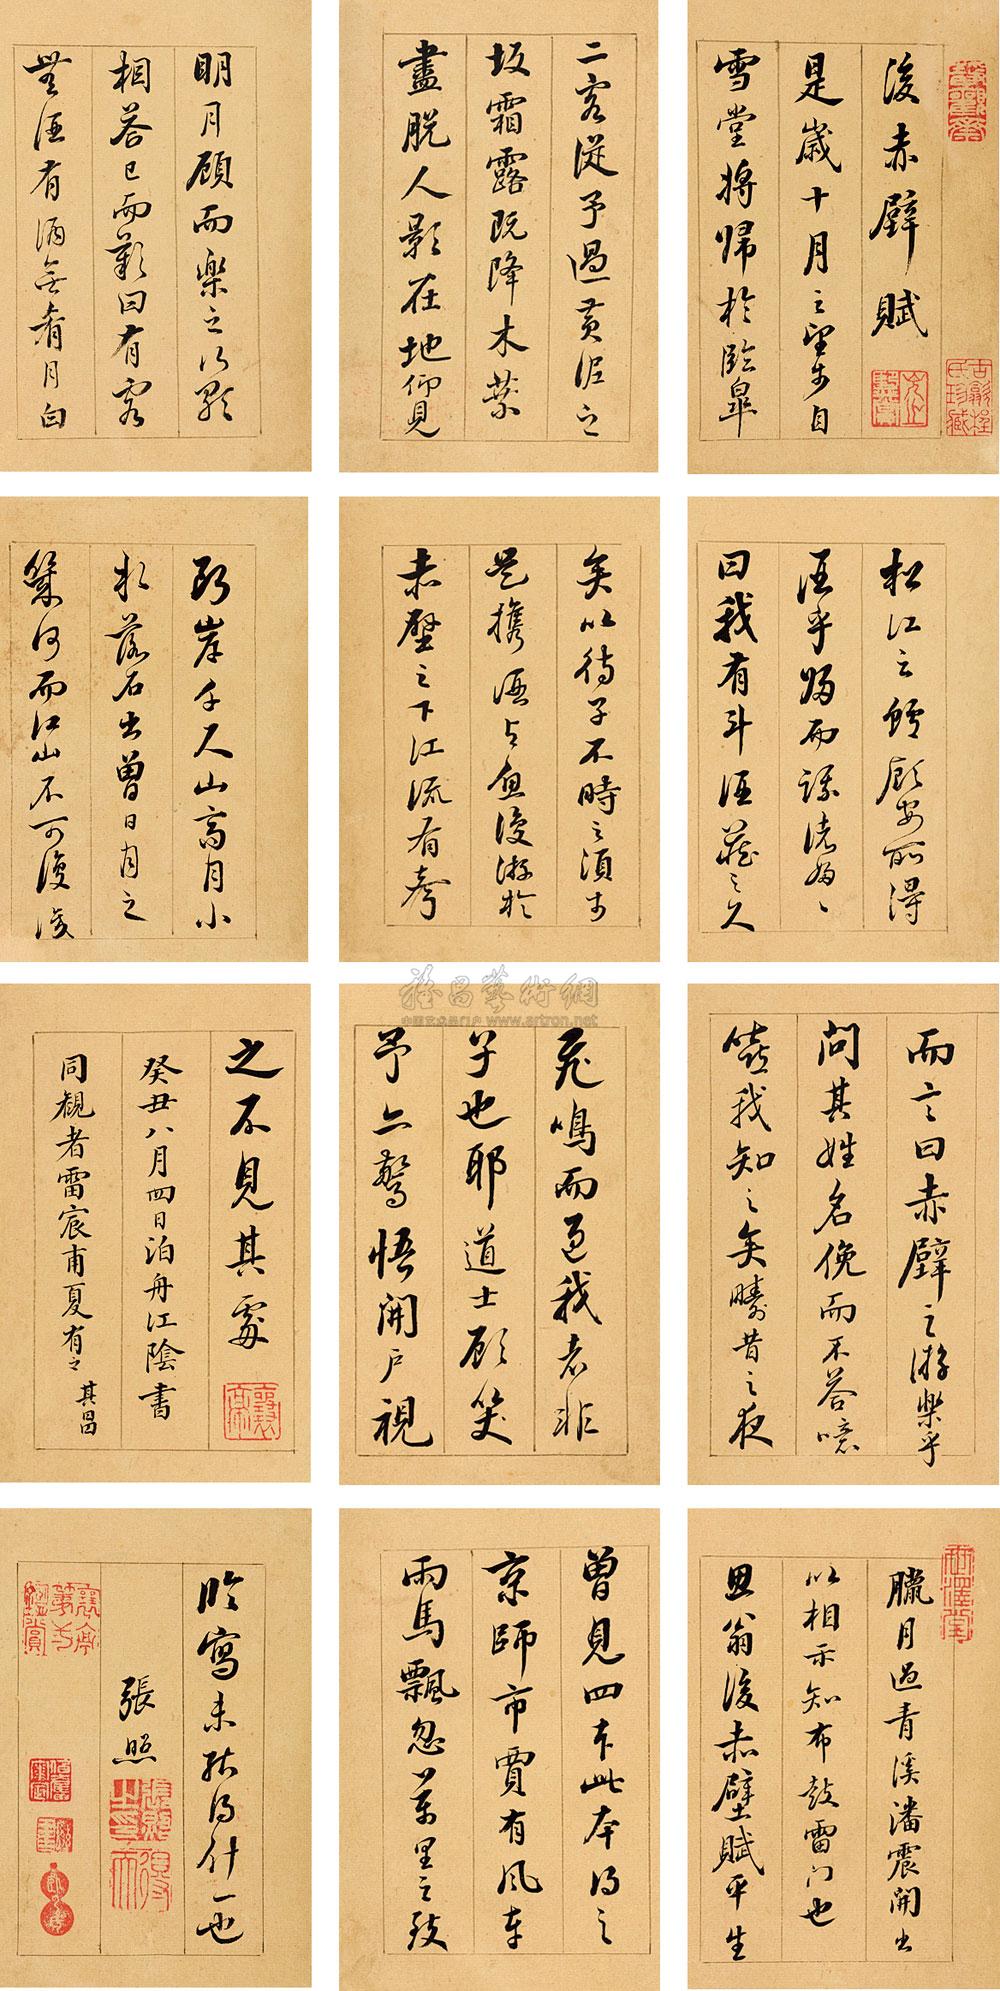 後赤壁賦
是歲十月之望步自
雪堂將歸於臨皋
二客從予過黃泥之
坂霜露既降木葉
盡脫人影在地仰見
明月顧而樂之行歌
相答已而歎曰有客
無酒有酒無肴月白
松江之鱸顧安所得
酒乎歸而謀諸婦婦
曰我有斗酒藏之久
矣以待子不時之須於
是攜酒與魚復游於
赤壁之下江流有聲
斷岸千尺山高月小
水落石出曾日月之
幾何而江山不可復
而言曰赤壁之游樂乎
問其姓名俛而不答噫
嘻我知之矣疇昔之夜
飛鳴而過我者非
子也耶道士顧笑
予亦驚悟開戶視
之不見其處
癸丑八月四日泊舟江陰書
同觀者雷宸甫夏有之 其昌
臘月過青溪潘震開出
以相示知布鼓雷門也
思翁後赤壁賦平生
曾見四本此本得之
京師市賈有風車
雨馬飄忽萬里之致
臨寫未能得什一也
張照
雅昌藝術網
www.artron.net